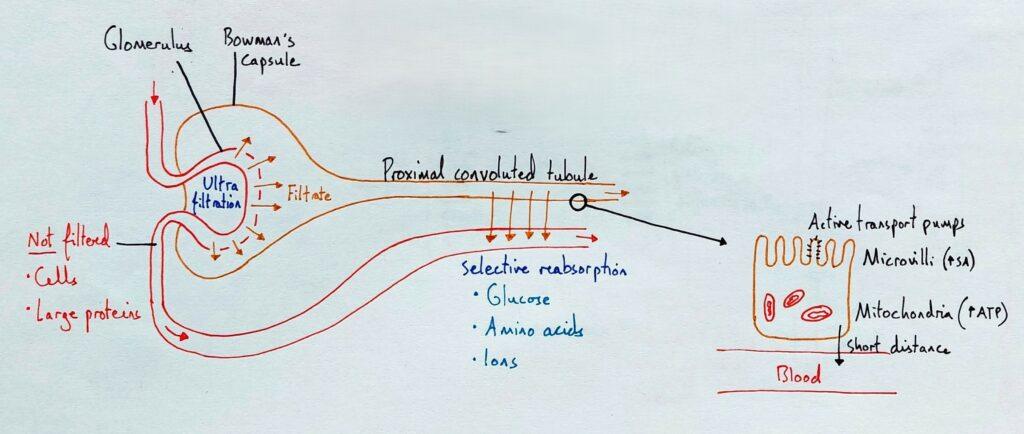 Glomerulus
Bowman's
Capsule
Proximal convoluted tubule
Ultra
filtration
Filtrate
Not filtered
• Cells
• Large proteins
Selective reabsorption
• Glucose
• Amino acids
• Ions
Active transport pumps
Microvilli (↑SA)
Mitochondria (↑ATP)
Short distance
Blood